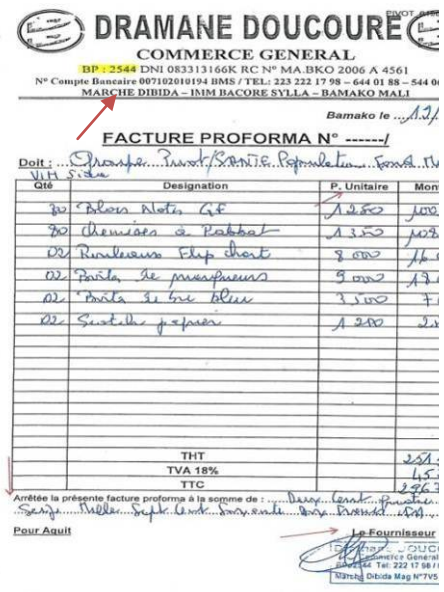 DRAMANE DOUCOURE
COMMERCE GENERAL
BP : 2544 DNI 083313166K RC N° MA.BKO 2006 A 4561
N° Compte Bancaire 007102010194 BMS / TEL: 223 222 17 01 88 – 644 0
MARCHE DIBIDA – IMM BACORE SYLLA – BAMAKO MALI
Bamako le ...12/
FACTURE PROFORMA N° ------/
Doit : Groupe Pivot/SANTE Population Fond M
VIH Sida
Qté Designation P. Unitaire Mon
80 Blocs Notes GF 1250 100
80 Chemises à Rabbat 1350 108
02 Rouleaux Flip chart 8000 16
02 Boite de marqueurs 9000 18
02 Boite de bic bleu 3500 7
02 Scotch papier 1200 2
THT 251
TVA 18% 45
TTC 296
Arrêtée la présente facture proforma à la somme de : Deux Cent Quatre
Seize Mille Sept Cent Soixante
Pour Aquit Le Fournisseur
Commerce General
BP 2544 Tel: 222 17 98 /
Marché Dibida Mag N°7V5